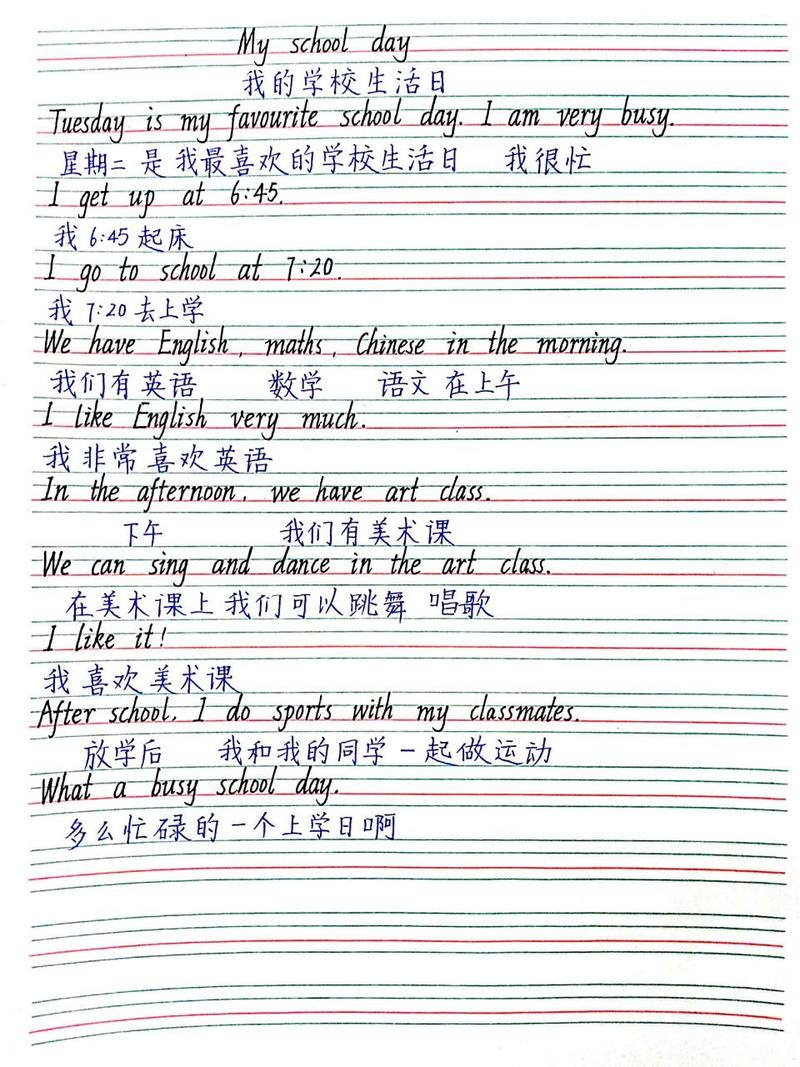 My school day
我的学校生活日
Tuesday is my favourite school day. I am very busy.
星期二 是 我最喜欢的学校生活日 我很忙
I get up at 6:45.
我 6:45 起床
I go to school at 7:20.
我 7:20 去上学
We have English, maths, Chinese in the morning.
我们有英语 数学 语文 在上午
I like English very much.
我 非常 喜欢 英语
In the afternoon, we have art class.
下午 我们有美术课
We can sing and dance in the art class.
在美术课上 我们可以跳舞 唱歌
I like it!
我 喜欢 美术课
After school, I do sports with my classmates.
放学后 我和我的同学一起做运动
What a busy school day.
多么忙碌的一个上学日啊